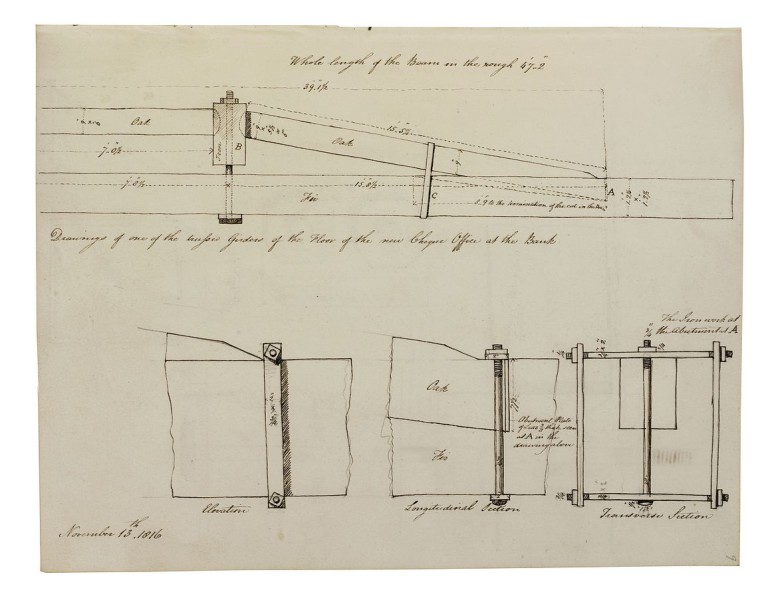 Whole length of the Beam in the rough 47..2
39..1½
15..5½
Oak
Oak
B
7..0½
7..0½
15..8½
Fir
C
A
3..9 to the termination of the cut in the
Drawings of one of the trussed Girders of the Floor of the new Cheque Office at the Bank
The Iron work at
the Abutment at A
Oak
Fir
Abutment Plate
thick, seen
at A in the
drawing above
Elevation
Longitudinal Section
Transverse Section
November 13th 1816